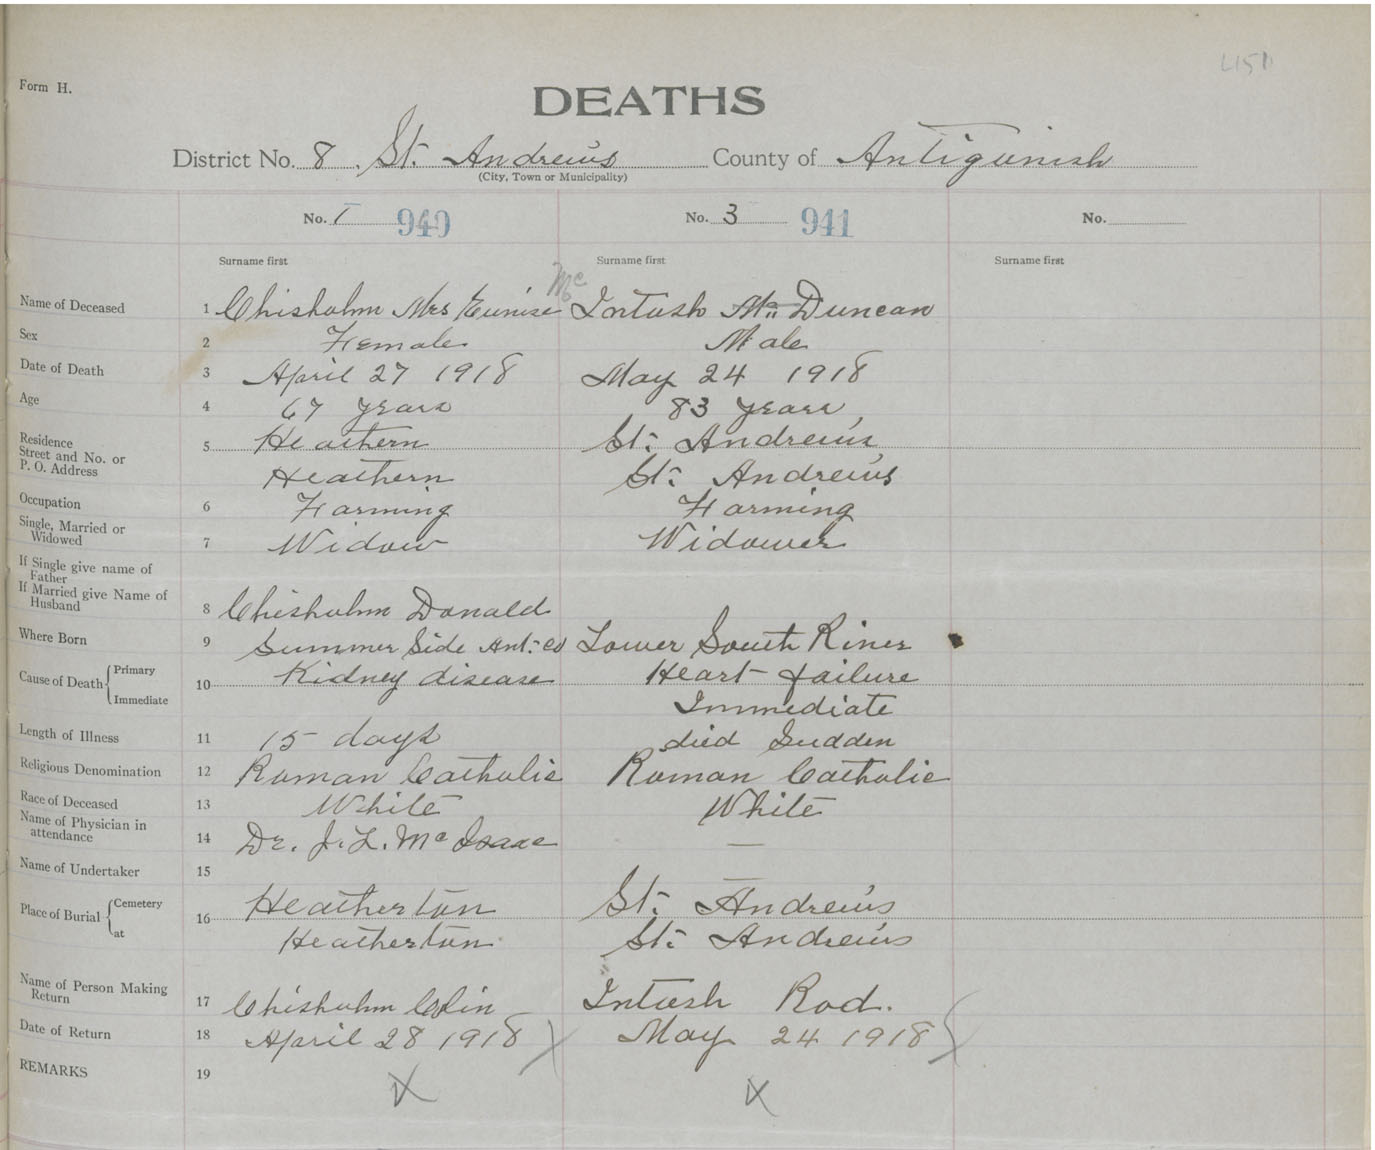 Form H.
DEATHS
District No. 8 St. Andrews County of Antigonish
(City, Town or Municipality)
No. 1 940 No. 3 941 No.
Surname first Surname first Surname first
Mc
Name of Deceased 1 Chisholm Mrs Eunise Intosh Mc Duncan
Sex 2 Female Male
Date of Death 3 April 27 1918 May 24 1918
Age 4 67 years 83 years
Residence 5 Heathern St. Andrews
Street and No. or
P. O. Address Heathern St. Andrews
Occupation 6 Farming Farming
Single, Married or
Widowed 7 Widow Widower
If Single give name of
Father
If Married give Name of
Husband 8 Chisholm Donald
Where Born 9 Summer Side Ant. Co Lower South River
Cause of Death { Primary 10 Kidney disease Heart failure
Immediate Immediate
Length of Illness 11 15 days died Sudden
Religious Denomination 12 Roman Catholic Roman Catholic
Race of Deceased 13 White White
Name of Physician in
attendance 14 Dr. J. L. McIsaac —
Name of Undertaker 15 —
Place of Burial { Cemetery 16 Heatherton St. Andrews
at Heatherton St. Andrews
Name of Person Making
Return 17 Chisholm Colin Intosh Rod.
Date of Return 18 April 28 1918 May 24 1918
REMARKS 19